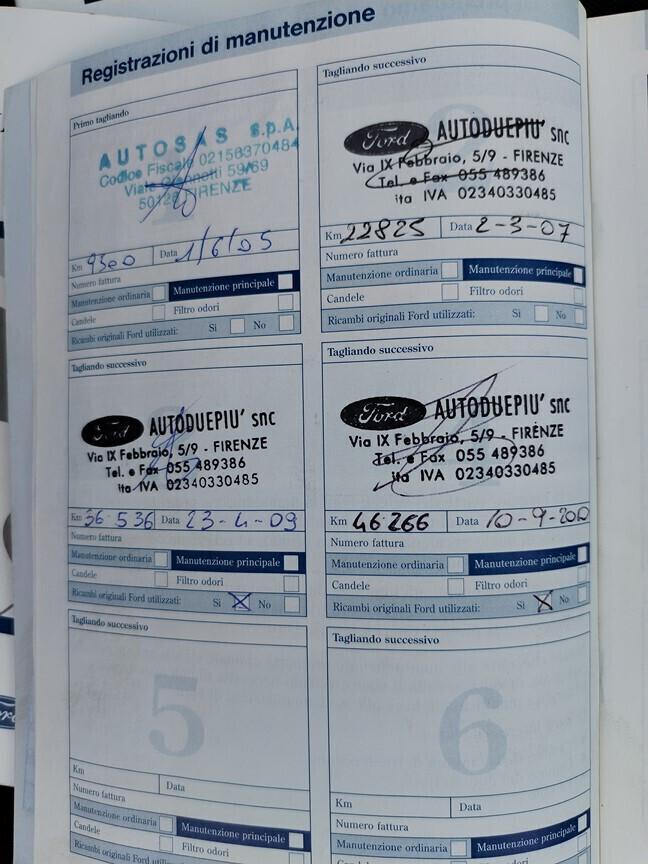 Registrazioni di manutenzione
Primo tagliando
AUTOSAS S.p.A.
Codice Fiscale 02156370484
Viale Giannotti 59/69
50126 FIRENZE
Km 9300 Data 1/6/05
Numero fattura
Manutenzione ordinaria Manutenzione principale
Candele Filtro odori
Ricambi originali Ford utilizzati: Sì No
Tagliando successivo
Ford AUTODUEPIU' snc
Via IX Febbraio, 5/9 - FIRENZE
Tel. e Fax 055 489386
ita IVA 02340330485
Km 22825 Data 2-3-07
Numero fattura
Manutenzione ordinaria Manutenzione principale
Candele Filtro odori
Ricambi originali Ford utilizzati: Sì No
Tagliando successivo
Ford AUTODUEPIU' snc
Via IX Febbraio, 5/9 - FIRENZE
Tel. e Fax 055 489386
ita IVA 02340330485
Km 36536 Data 23-4-09
Numero fattura
Manutenzione ordinaria Manutenzione principale
Candele Filtro odori
Ricambi originali Ford utilizzati: Sì No
Tagliando successivo
Ford AUTODUEPIU' snc
Via IX Febbraio, 5/9 - FIRENZE
Tel. e Fax 055 489386
ita IVA 02340330485
Km 46266 Data 10-9-200
Numero fattura
Manutenzione ordinaria Manutenzione principale
Candele Filtro odori
Ricambi originali Ford utilizzati: Sì No
Tagliando successivo
5
Km Data
Numero fattura
Manutenzione ordinaria Manutenzione principale
Candele Filtro odori
Ricambi originali Ford utilizzati: Sì No
Tagliando successivo
6
Km Data
Numero fattura
Manutenzione ordinaria Manutenzione principale